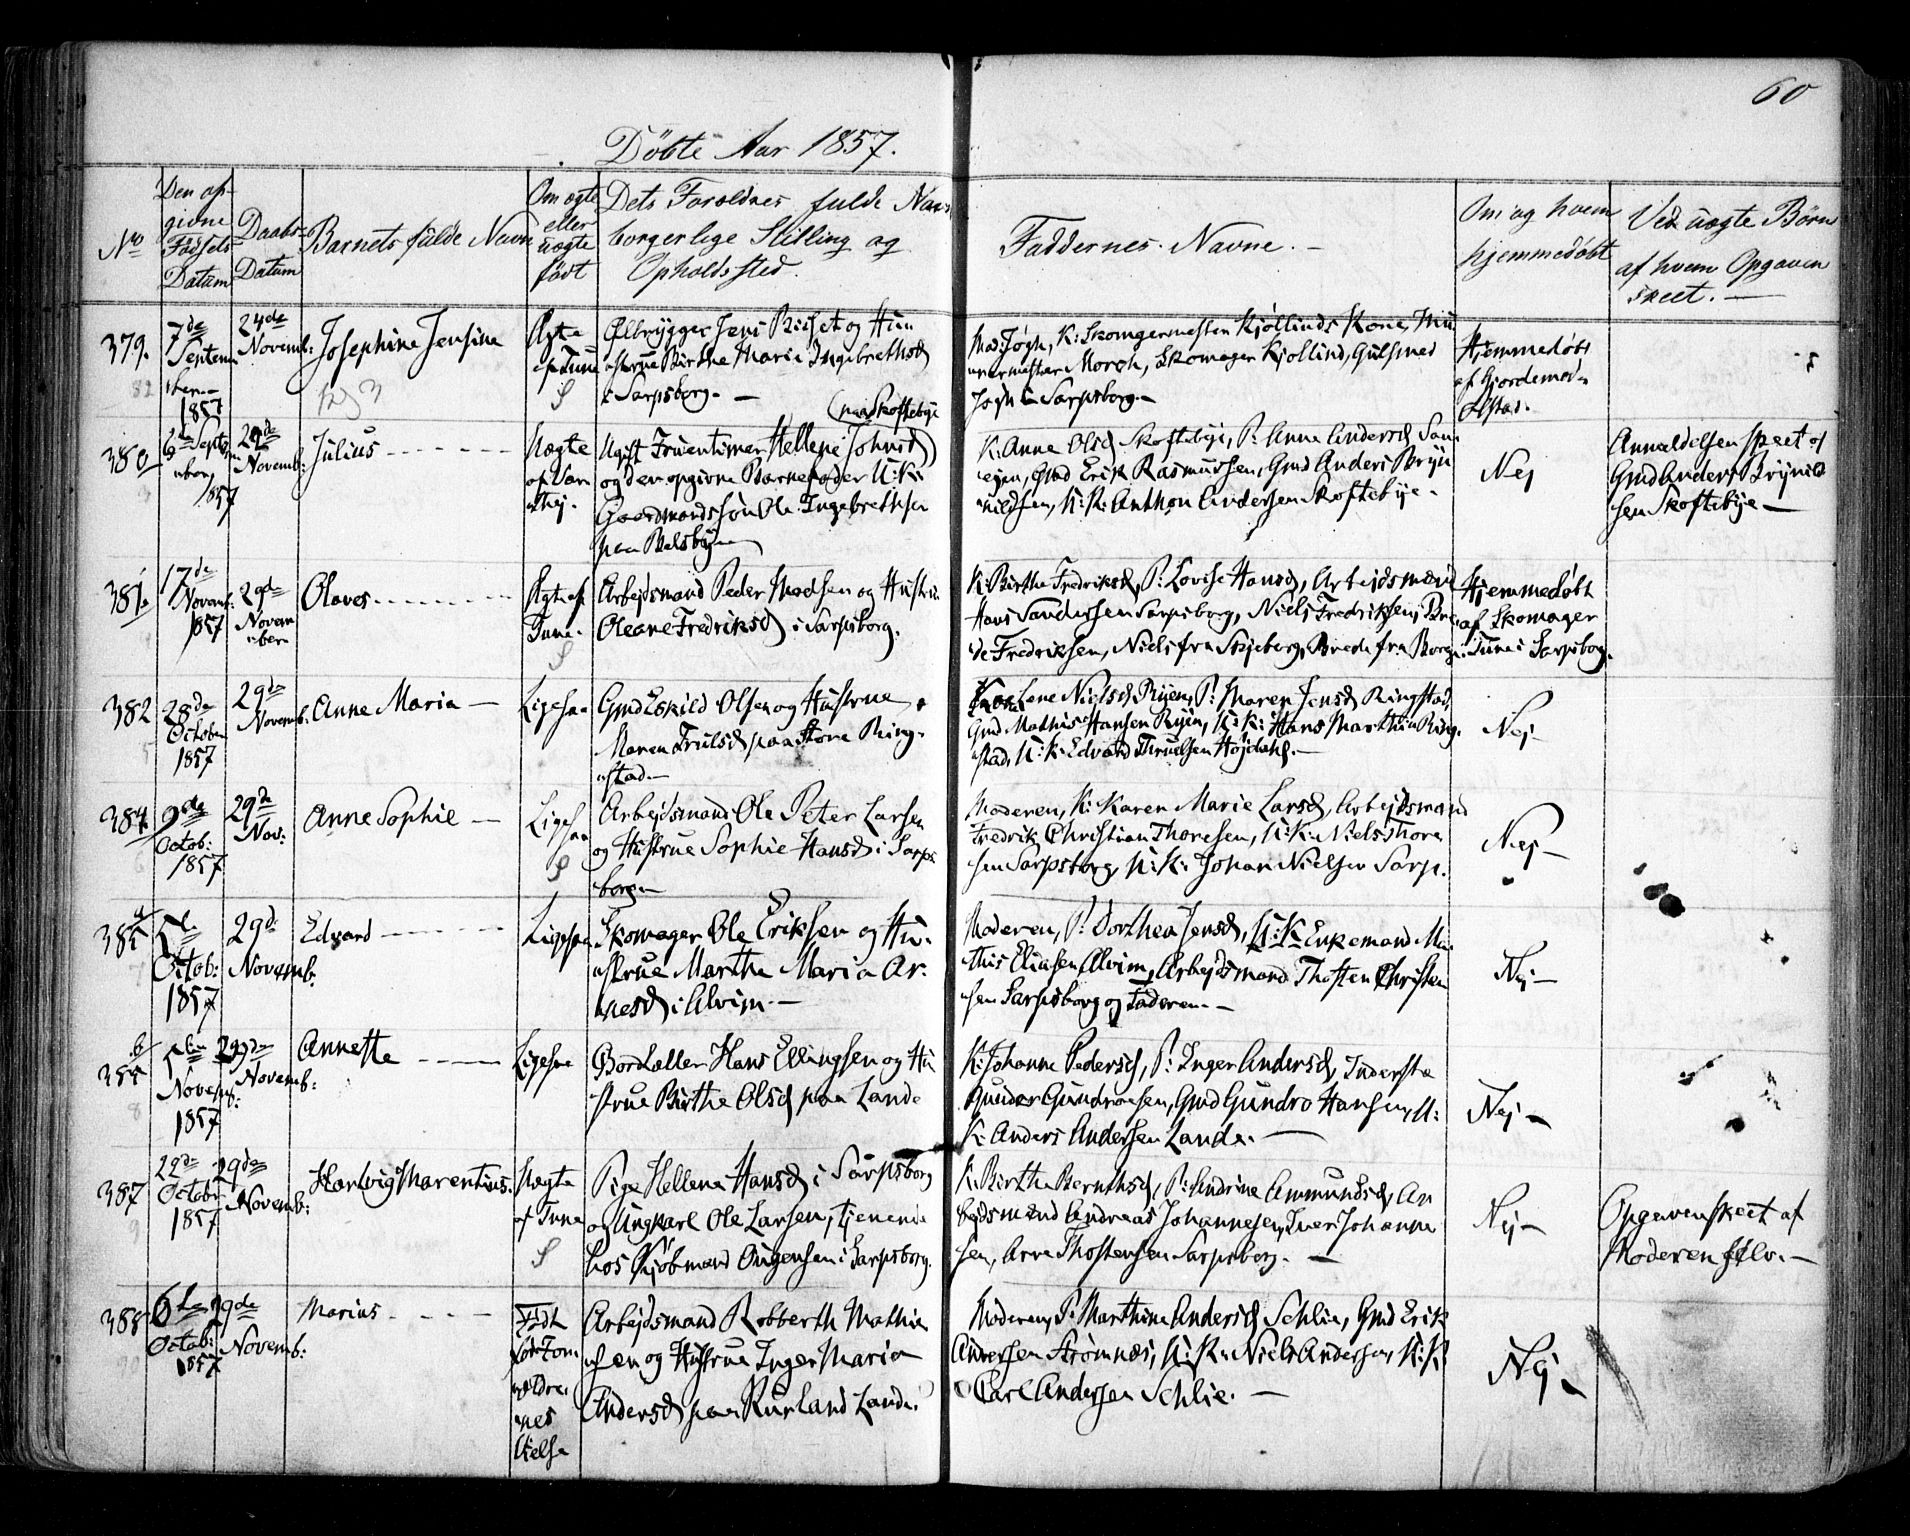 60
Döbte Aar 1857.
No
Den op-
givne
Födsels
Datum
Daabs-
Datum
Barnets fulde Navn
Om ægte
eller
uægte
födt
Dets Foreldres fulde Navn
borgerlige Stilling og
Opholdssted.
Faddernes Navne. -
Om og hvem
hjemmedöbt
Ved uægte Börn
af hvem Opgaven
skeet. -
379.
7de
Septem
ber
1857
24de
Novemb:
Josephine Jensine
Ægte
af Tune
Ølbrygger Jens og Hu
strue Birthe Marie Ingebrethsd
i Sarpsborg. -
Mad: Jøgh, K: Skomagermester Kjöllinds Kone, Mu
urermester Morch, Skomager Kjöllind, Gulsmed
Jøgh i Sarpsborg. -
Hjemmedöbt
af Gjordemod.
380
6te Septem
ber,
1857
29de
Novemb:
Julius
Uægte
af Var
theg.
(paa Skoftebÿe
Ugift Fruentimer Hellene Johnsd
og den opgivne Barnefader U: K:
Gaardmandssön Ole Ingebrethsen
paa
K: Anne Olsd Skoftebÿe, P: Anne Andersd San
nesen, Gmd Erik Rasmussen, Gmd Anders Brÿn
nildsen, U: K: Anthon Andersen Skoftebÿe.
Nej
Anmeldelsen skeet af
Gmd Anders Brÿnild
sen Skoftebÿe -
381.
17de
Novemb:
1857
29de
Novem
ber
Olaves
Ægte af
Tune.
Arbejdsmand Peder Madsen og Hustrue
Oleane Fredriksd i Sarpsborg.
K: Birthe Fredriksd, P: Lovise Hansd, Arbejdsmænd
Hans Sandersen Sarpsborg, Niels Fredriksen, Bre
de Fredriksen, Niels fra Skjeberg, Brede fra Borge.
Hjemmedöbt
af Skomager
Tune i Sarpsborg.
382
28de
October
1857
29de
Novemb:
Anne Maria -
Ligesaa
Gmd Eskild Olsen og Hustrue
Maren Trulsd paa Store Ring-
stad -
Lene Nielsd Ryen, P: Maren Jensd Ringstad,
Gmd Mathis Hansen Ryen, U: K: Hans Marthin Ring
stad, U: K: Edvard Truelsen Højdahl. -
Nej
384
9de
Octob:
1857
29de
Nov:
Anne Sophie -
Ligesaa
Arbejdsmand Ole Peter Larsen
og Hustrue Sophie Hansd i Sarps
borg -
Moderen, K: Karen Marie Larsd, Arbejdsmand
Fredrik Christian Thoresen, U: K: Niels Thore
sen Sarpsborg, U: K: Johan Nielsen Sarp.
Nej -
385 a
5te
Octob:
1857
29de
Novemb:
Edvard
Ligesaa
Skomager Ole Eriksen og Hu-
strue Marthe Maria Ar-
nesd i Alvim. -
Moderen, P: Dorthea Jensd, U: K Enkemand Ma
this Eliasen Alvim, Arbejdsmand Thosten Christen
sen Sarpsborg og Faderen. -
Nej -
385 b
5te
Novemb:
1857
29de
Novemb:
Annette
Ligesaa
Hans Ellingsen og Hu
strue Birthe Olsd paa Lande
K: Johanne Pedersd, P: Inger Andersd, Inderste
Gunder Gundroesen, Gmd Gundro Hansen, U:
K: Anders Andersen Lande. -
Nej -
387
22de
Octobr
1857
29de
Novemb:
Hartvig Marentius.
Uægte
af Tune
Pige Hellene Hansd i Sarpsborg
og Ungkarl Ole Larsen, tjenende
hos Kjöbmand i Sarpsborg.
K: Birthe Bernthsd, P: Andrine Ammundsd, Ar
bejdsmænd Andreas Johannesen, Iver Johanne
sen, Arve Thostensen Sarpsborg. -
Nej -
Opgaven skeet af
Moderen sselv. -
388
6te
Octob:
1857
29de
Novemb:
Marius
Födt
för For
ældre
nes
Vielse
Arbejdsmand Robberth Mathia
sen og Hustrue Inger Maria
Andersd paa Lande.
Moderen, P: Marthine Andersd Schlie, Gmd Erik
Andersen Strömnes, U: K: Niels Andersen, U: K:
Carl Andersen Schlie. -
Nej -